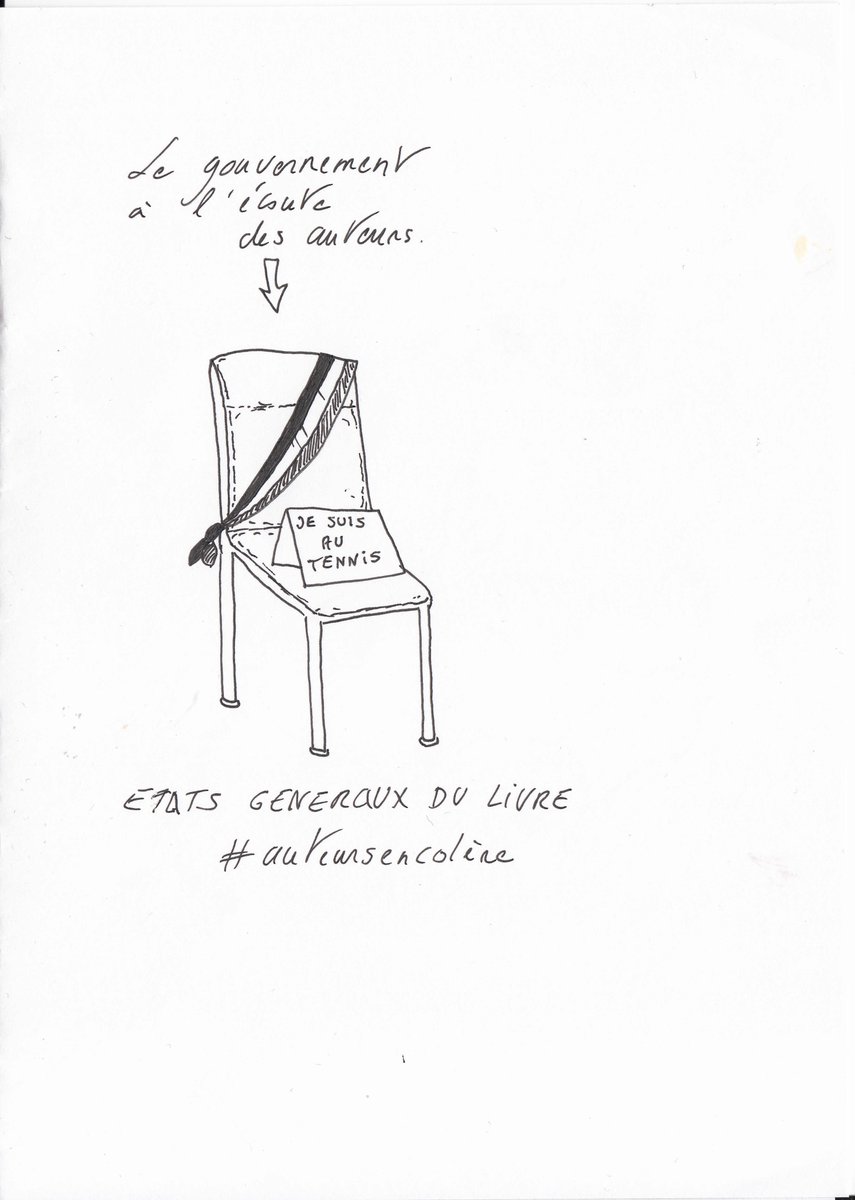 Le gouvernement
à l'écoute
des auteurs.
JE SUIS
AU
TENNIS
ETATS GENERAUX DU LIVRE
#auteursencolère